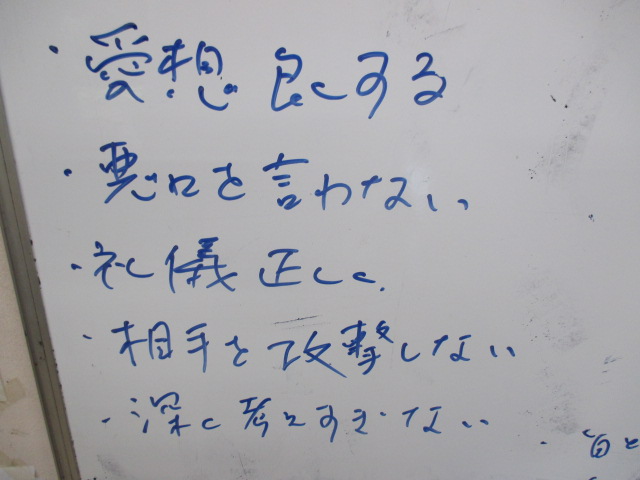 ・愛想良くする
・悪口を言わない
・礼儀正しく.
・相手を攻撃しない
・深く考えすぎない